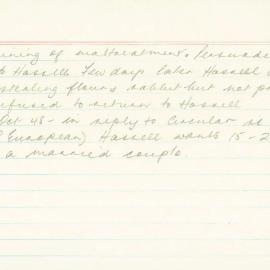 ining of maltreatment. Persuaded
to Hassell. Few days later Hassell
stealing flour & rabbit but not
efused to return to Hassell
Oct 48 - in reply to Circular
European) Hassell wants 15-2
a married couple.